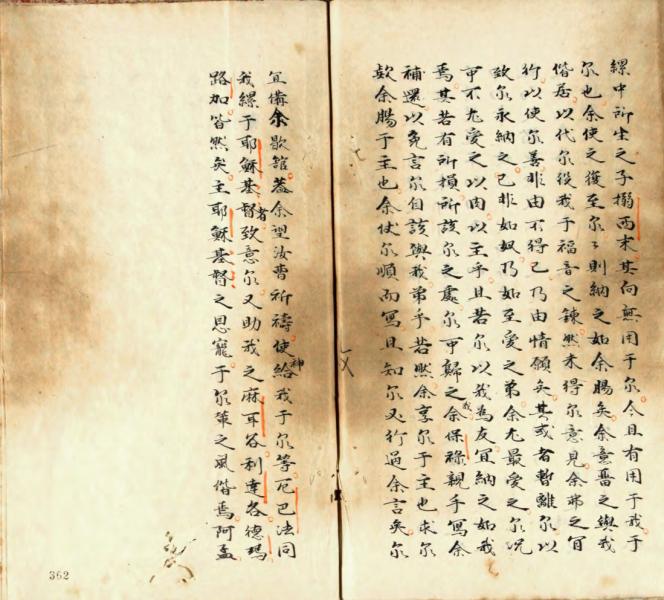 縲中所生之子搨西末其向無用于尔今且有用于我于
尔也余使之復至尔尔則納之如余腸矣余意畱之與我
偕居以代尔役我于福音之鍊然未得尔意見余弗之冝
行以使尔善非由不得已乃由情願矣其或者暫離尔以
致尔永納之已非如奴乃如至愛之弟余尤最愛之尔况
可不尤愛之以肉以主乎且若尔以我為友冝納之如我
焉其若有所損所該尔之處尔可歸之我余保祿親手寫余
補還以免言尔自該與我弟乎若然余享尔于主也求尔
歎余腸于主也余伏尔順而寫且知尔又行過余言矣尔
冝備余歇舘葢余望汝曹祈禱使神給我于尔等厄巴法同
我縲于耶穌基督者致意尔又助我之麻耳谷利達各德瑪
路加皆然矣主耶穌基督之恩寵于尔輩之風偕焉阿孟
362